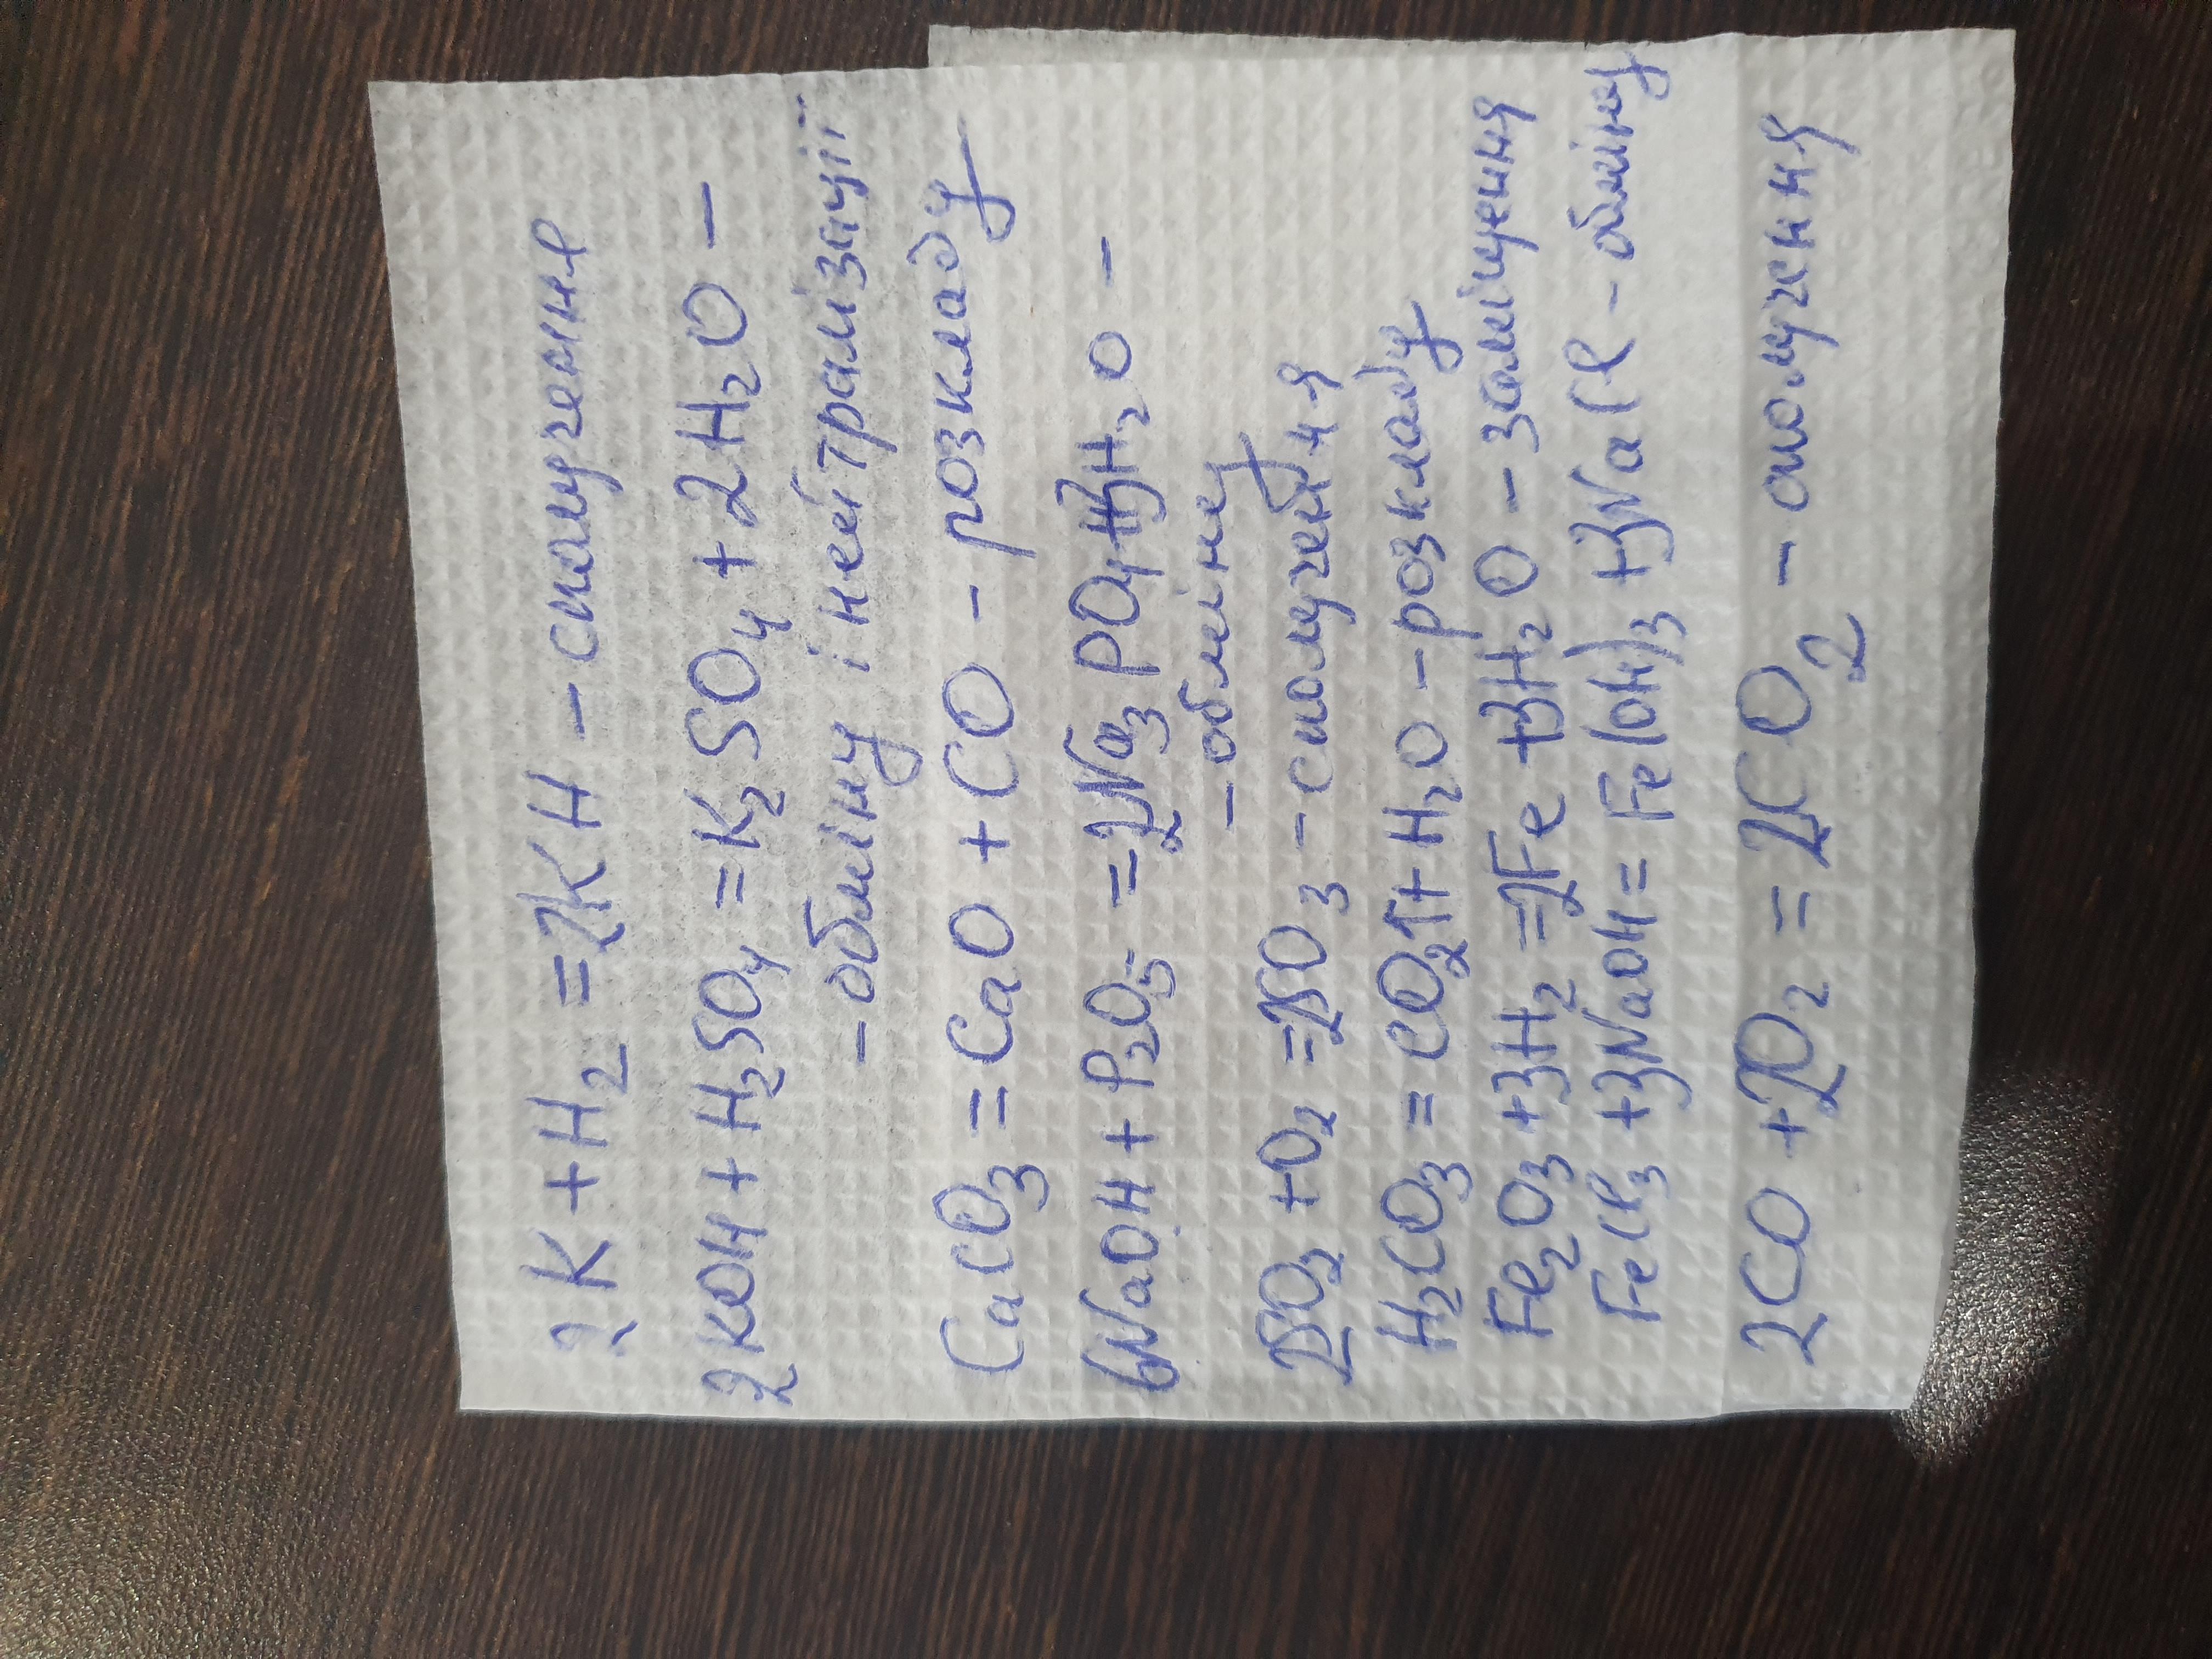 2K + H₂ = 2KH - сполучення
2KOH + H₂SO₄ = K₂SO₄ + 2H₂O -
- обміну і нейтралізації
CaCO₃ = CaO + CO - розкладу
6NaOH + P₂O₅ = 2Na₃PO₄ + 3H₂O -
- обміну
2SO₂ + O₂ = 2SO₃ - сполучення
H₂CO₃ = CO₂↑ + H₂O - розкладу
Fe₂O₃ + 3H₂ = 2Fe + 3H₂O - заміщення
FeCl₃ + 3NaOH = Fe(OH)₃ + 3NaCl - обміну
2CO + 2O₂ = 2CO₂ - сполучення